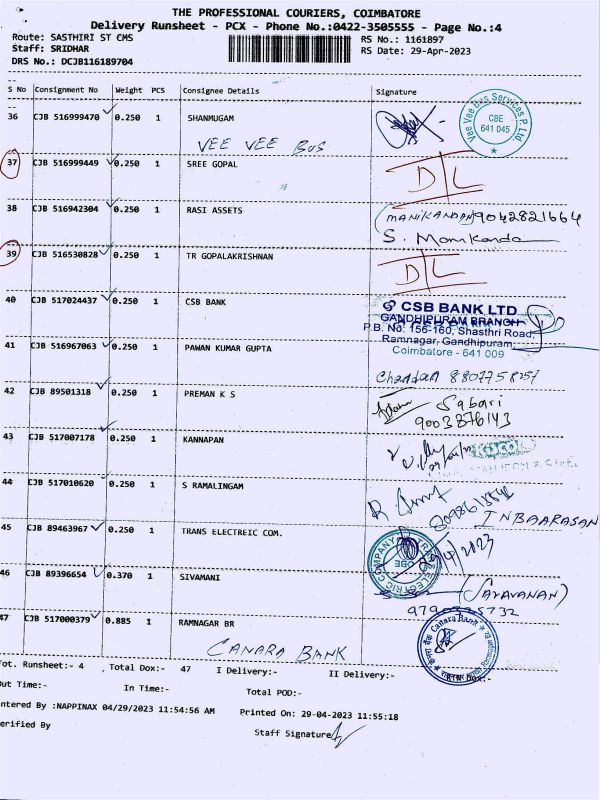 THE PROFESSIONAL COURIERS, COIMBATORE
Delivery Runsheet - PCX - Phone No.:0422-3505555 - Page No.:4
Route: SASTHIRI ST CMS RS No.: 1161897
Staff: SRIDHAR RS Date: 29-Apr-2023
DRS No.: DCJB116189704
S No Consignment No Weight PCS Consignee Details Signature
36 CJB 516999470 0.250 1 SHANMUGAM
VEE VEE BUS
Vee Vee Bus Services P. Ltd.
CBE
641 045
37 CJB 516999449 0.250 1 SREE GOPAL D/L
38 CJB 516942304 0.250 1 RASI ASSETS (MANIKANDAN) 9042821664
S. Manikanda
39 CJB 516530828 0.250 1 TR GOPALAKRISHNAN D/L
40 CJB 517024437 0.250 1 CSB BANK
CSB BANK LTD
GANDHIPURAM BRANCH
P.B. No. 156-160, Shasthri Road,
Ramnagar, Gandhipuram
Coimbatore - 641 009
41 CJB 516967063 0.250 1 PAWAN KUMAR GUPTA
Chandan
42 CJB 89501318 0.250 1 PREMAN K S Sabari
9003876143
43 CJB 517007178 0.250 1 KANNAPAN
44 CJB 517010620 0.250 1 S RAMALINGAM
INBAARASAN
45 CJB 89463967 0.250 1 TRANS ELECTREIC COM.
46 CJB 89396654 0.370 1 SIVAMANI
(Saravanan)
47 CJB 517000379 0.885 1 RAMNAGAR BR
CANARA BANK
Canara Bank
Tot. Runsheet:- 4 Total Dox:- 47 I Delivery:- II Delivery:- Dox:-
Out Time:- In Time:- Total POD:-
ntered By :NAPPINAX 04/29/2023 11:54:56 AM Printed On: 29-04-2023 11:55:18
erified By Staff Signature